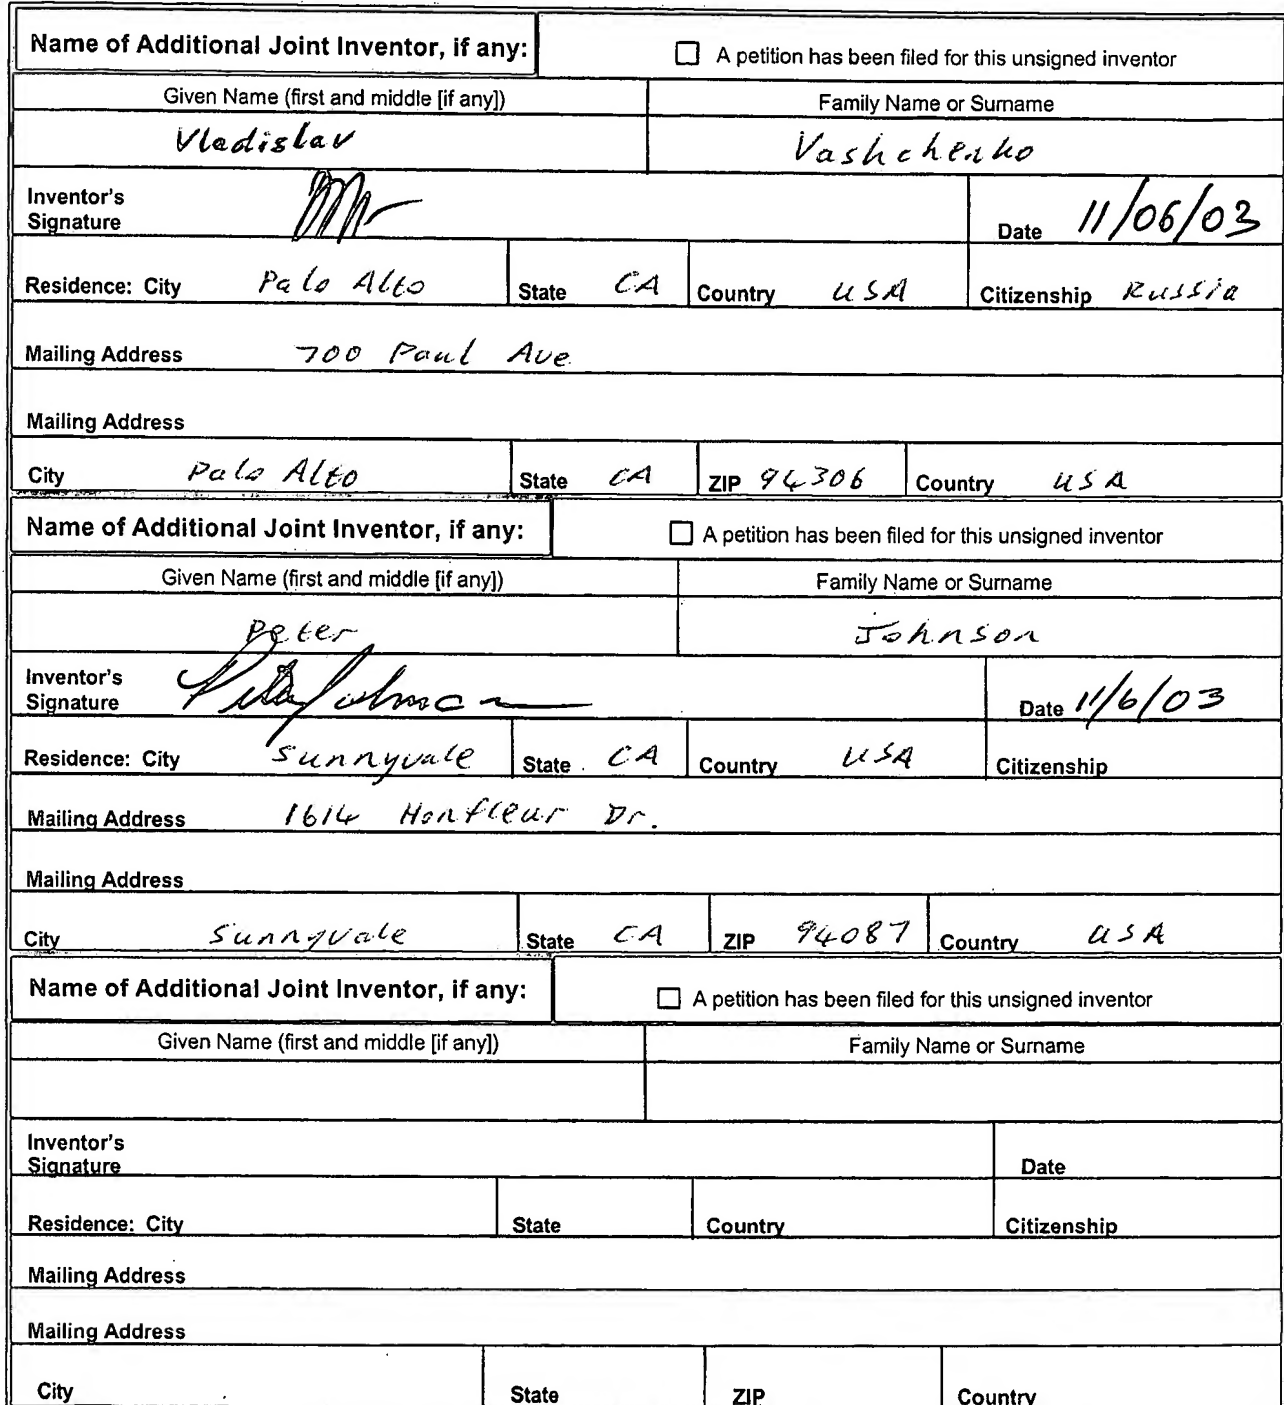 Name of Additional Joint Inventor, if any: A petition has been filed for this unsigned inventor
Given Name (first and middle [if any]) Family Name or Surname
Vladislav Vashchenko
Inventor's
Signature Date 11/06/03
Residence: City Palo Alto State CA Country USA Citizenship Russia
Mailing Address 700 Paul Ave
Mailing Address
City Palo Alto State CA ZIP 94306 Country USA
Name of Additional Joint Inventor, if any: A petition has been filed for this unsigned inventor
Given Name (first and middle [if any]) Family Name or Surname
Peter Johnson
Inventor's
Signature Peter Johnson Date 11/6/03
Residence: City Sunnyvale State CA Country USA Citizenship
Mailing Address 1614 Honfleur Dr.
Mailing Address
City Sunnyvale State CA ZIP 94087 Country USA
Name of Additional Joint Inventor, if any: A petition has been filed for this unsigned inventor
Given Name (first and middle [if any]) Family Name or Surname
Inventor's
Signature Date
Residence: City State Country Citizenship
Mailing Address
Mailing Address
City State ZIP Country